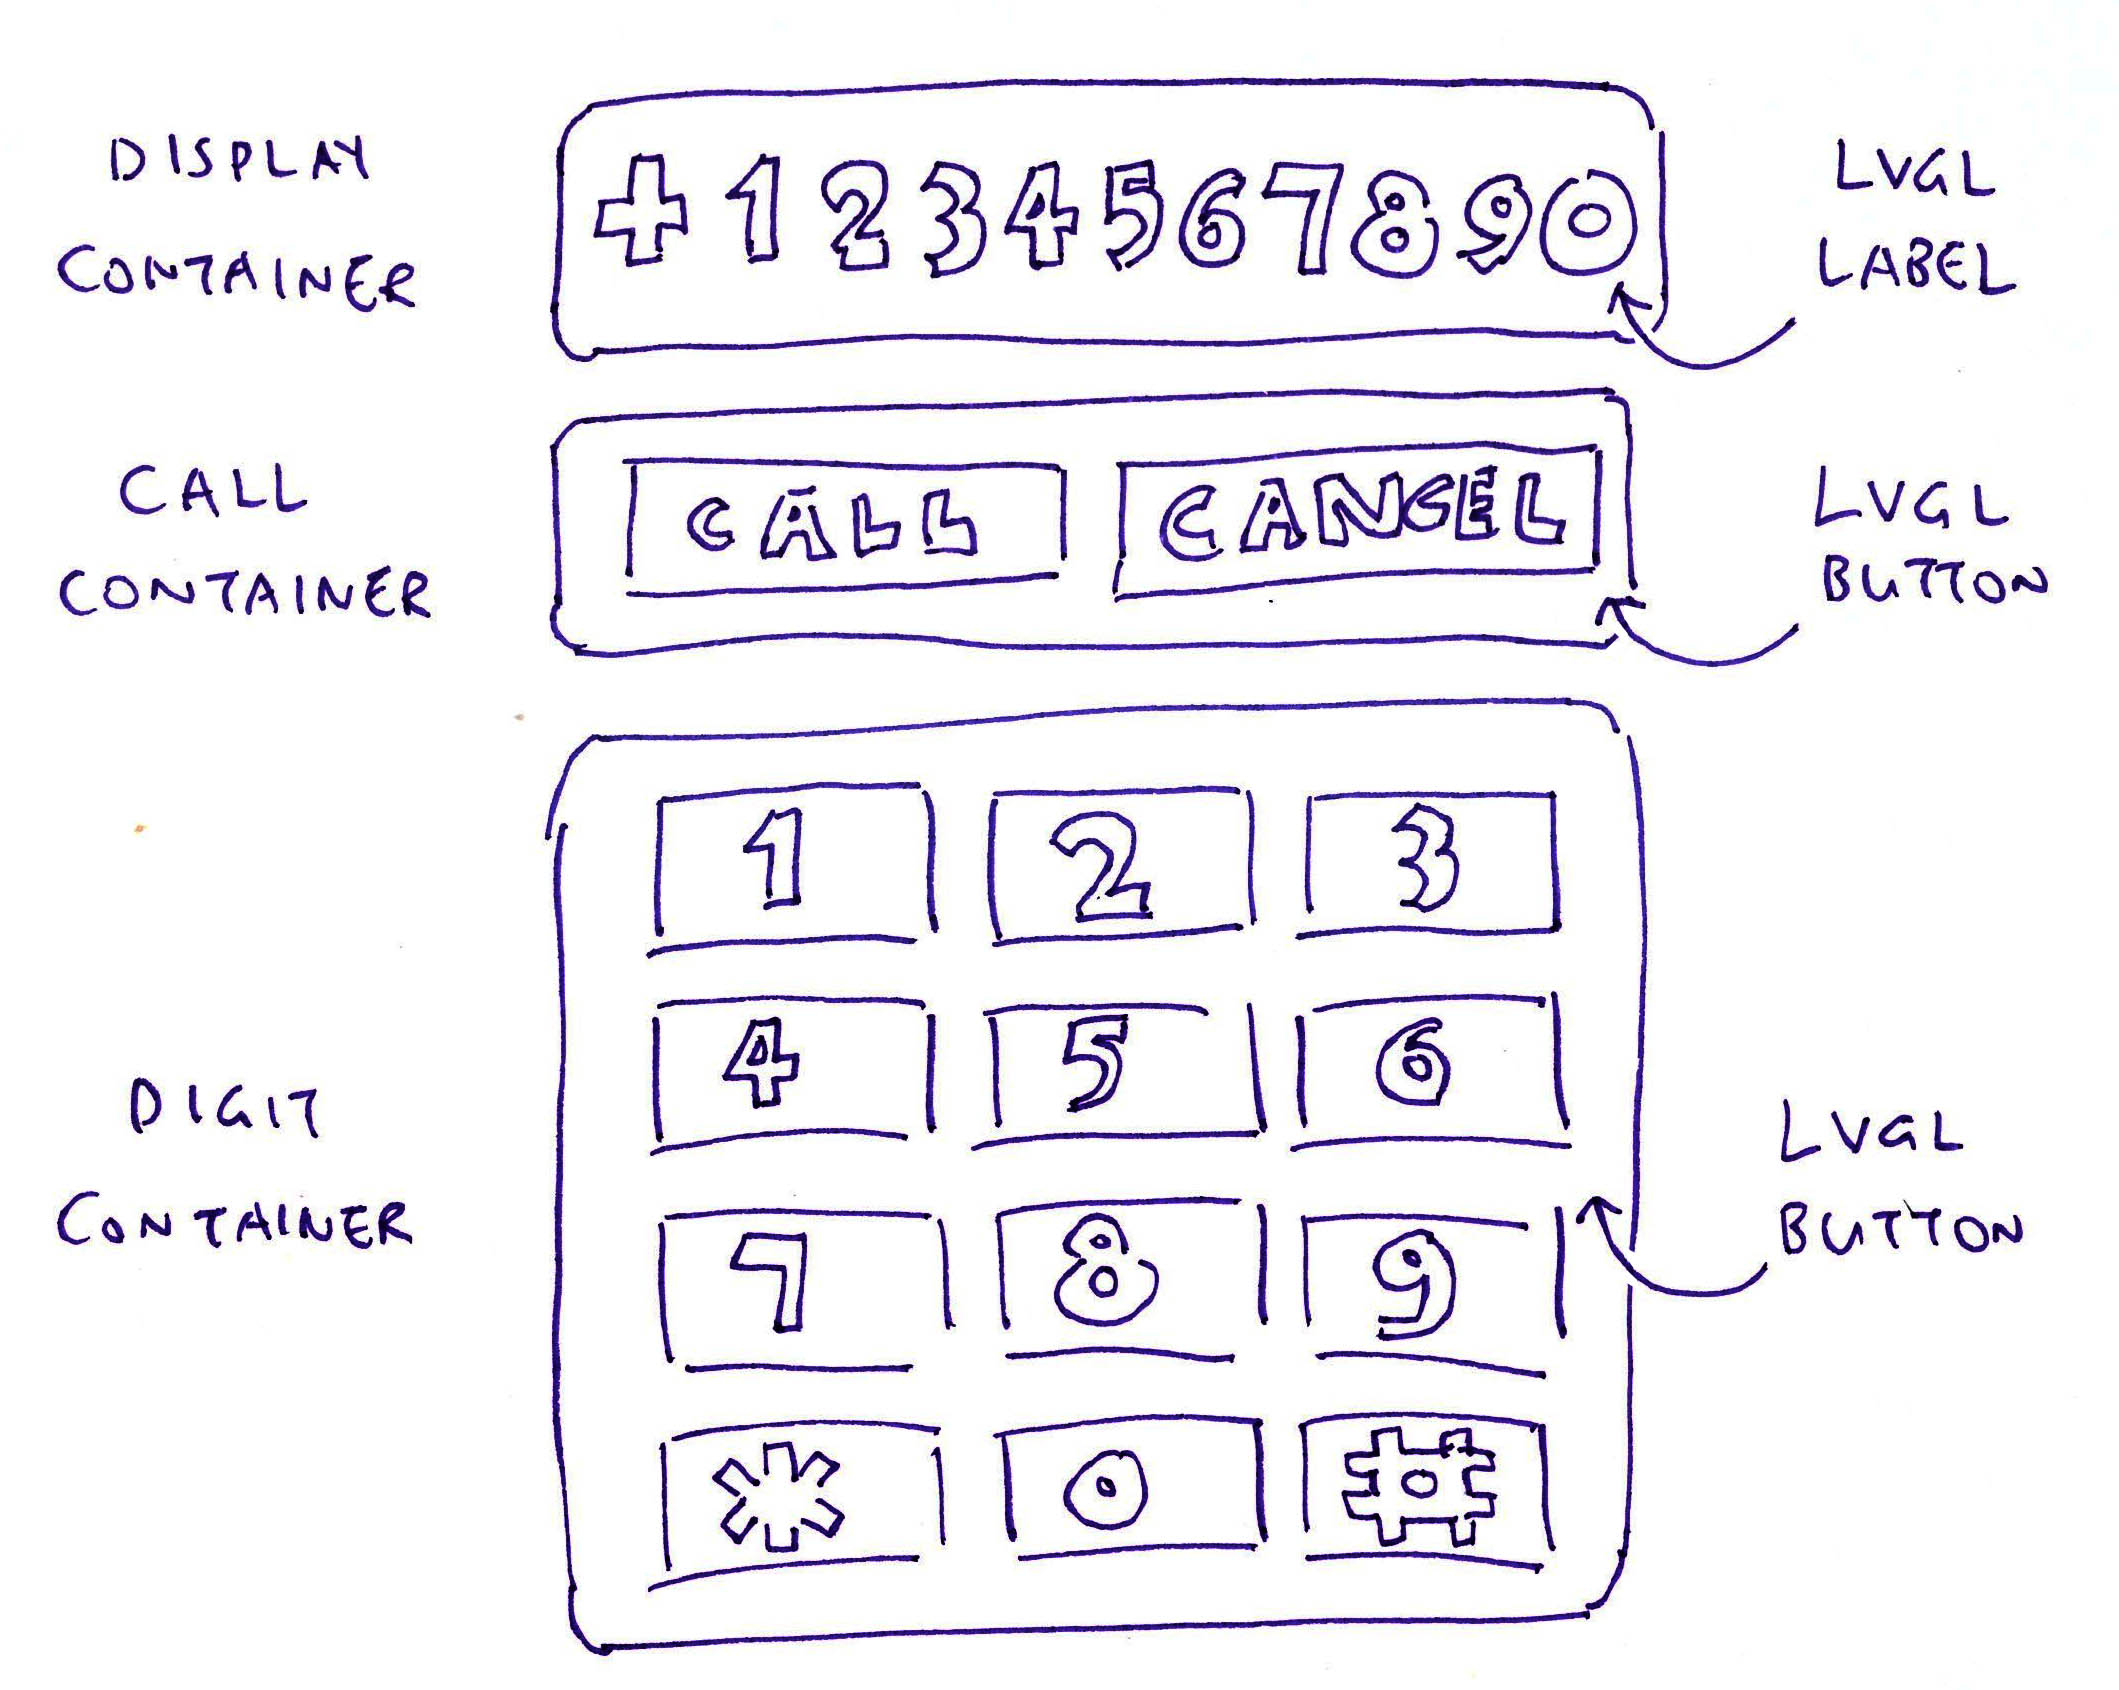 DISPLAY
CONTAINER
+1234567890
LVGL
LABEL
CALL
CONTAINER
CALL CANCEL
LVGL
BUTTON
1 2 3
4 5 6
DIGIT
CONTAINER
LVGL
BUTTON
7 8 9
* 0 #